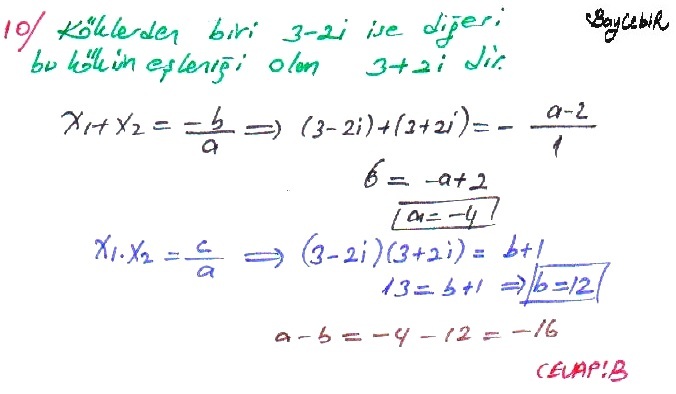 10/ Köklerden biri 3-2i ise diğeri
BaycebiR
bu kökün eşleniği olan 3+2i dir.
x₁+x₂ = -b/a ⟹ (3-2i)+(3+2i) = - a-2/1
6 = -a+2
a=-4
x₁.x₂ = c/a ⟹ (3-2i)(3+2i) = b+1
13 = b+1 ⟹ b=12
a-b = -4-12 = -16
CEVAP:B